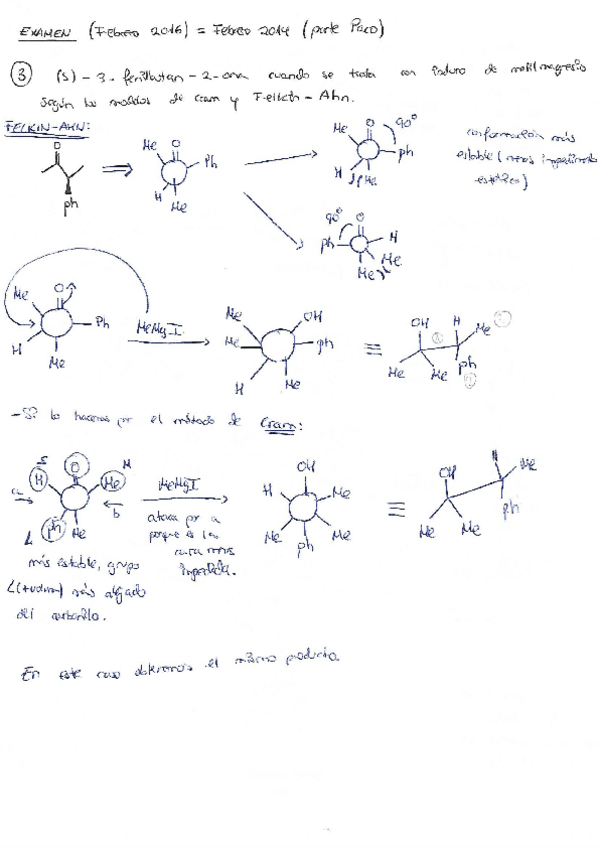 EXAMEN (Febrero 2016) = Febrero 2014 (parte Paco)
③ (S)-3-fenilbutan-2-ona cuando se trata con ioduro de metilmagnesio
según los modelos de Cram y Felkin-Ahn.
FELKIN-AHN:
O
ph
Me O
Ph
H Me
Me O 90°
ph
H Me
conformación más
estable (menos impedimento
estérico)
90° O
ph H
Me
Me
Me O
Ph
H Me
MeMgI
Me OH
Me ph
H Me
≡
OH H Me
Me Me ph
- Si lo hacemos por el método de Cram:
S O M
H Me
a b
L ph Me
más estable, grupo
L (+ volum) más alejado
del carbonilo.
MeMgI
ataca por a
porque es la
cara menos
impedida.
OH
H Me
Me Me
ph
≡
OH H Me
Me Me ph
En este caso obtenemos el mismo producto.